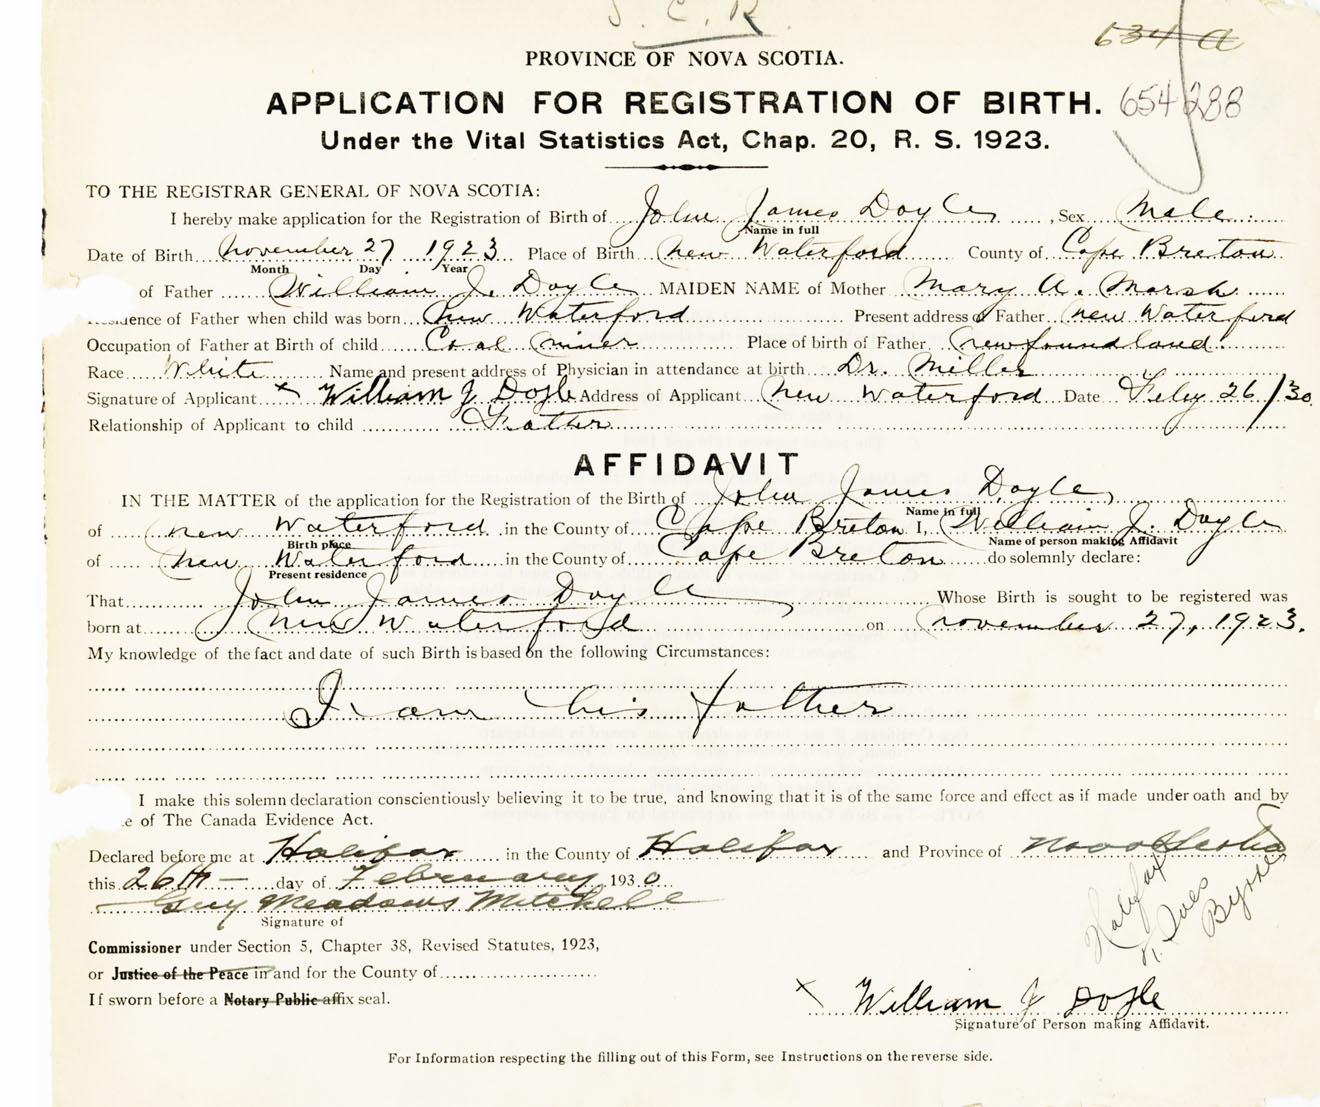 J. C. R.
634 a
PROVINCE OF NOVA SCOTIA.
APPLICATION FOR REGISTRATION OF BIRTH. 654288
Under the Vital Statistics Act, Chap. 20, R. S. 1923.
TO THE REGISTRAR GENERAL OF NOVA SCOTIA:
I hereby make application for the Registration of Birth of John James Doyle, Sex Male
Name in full
Date of Birth November 27 1923 Place of Birth New Waterford County of Cape Breton
Month Day Year
of Father William J. Doyle MAIDEN NAME of Mother Mary A. Marsh
idence of Father when child was born New Waterford Present address of Father New Waterford
Occupation of Father at Birth of child Coal miner Place of birth of Father Newfoundland
Race White Name and present address of Physician in attendance at birth Dr. Miller
Signature of Applicant x William J Doyle Address of Applicant New Waterford Date Feby 26/30
Relationship of Applicant to child Father
AFFIDAVIT
IN THE MATTER of the application for the Registration of the Birth of John James Doyle,
Name in full
of New Waterford in the County of Cape Breton I, William J. Doyle
Birth place Name of person making Affidavit
of New Waterford in the County of Cape Breton do solemnly declare:
Present residence
That John James Doyle Whose Birth is sought to be registered was
born at New Waterford on November 27, 1923.
My knowledge of the fact and date of such Birth is based on the following Circumstances:
I am his father
I make this solemn declaration conscientiously believing it to be true, and knowing that it is of the same force and effect as if made under oath and by
e of The Canada Evidence Act.
Declared before me at Halifax in the County of Halifax and Province of Nova Scotia
this 26th day of February, 1930
Guy Meadows Mitchell
Signature of
Halifax
Byrne
Commissioner under Section 5, Chapter 38, Revised Statutes, 1923,
or Justice of the Peace in and for the County of
If sworn before a Notary Public affix seal.
x William J Doyle
Signature of Person making Affidavit.
For Information respecting the filling out of this Form, see Instructions on the reverse side.